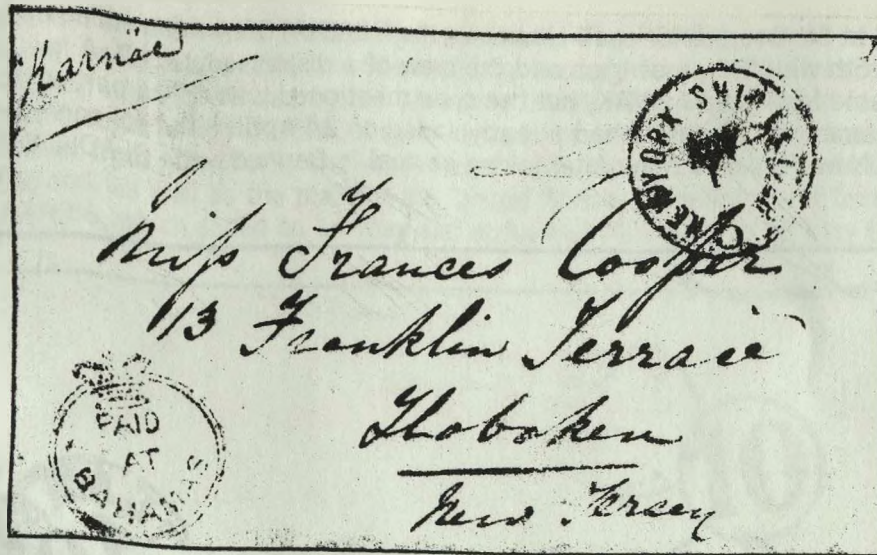 "Karnac
NEW YORK SHIP LETTER
Miss Frances Cooper
13 Franklin Terrace
Hoboken
New Jersey
PAID
AT
BAHAMAS